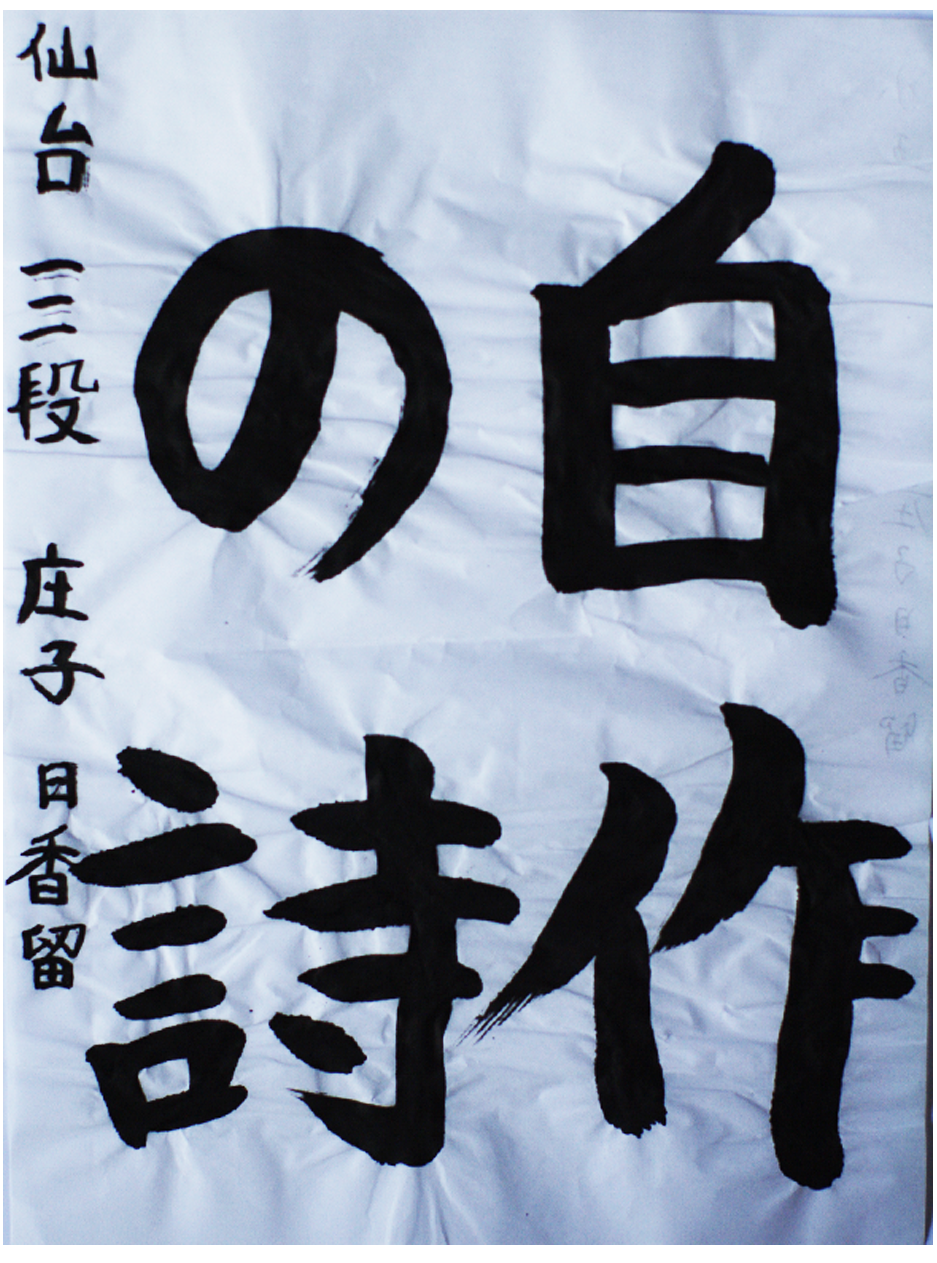 自作
の詩
仙台 三段 庄子 日香留